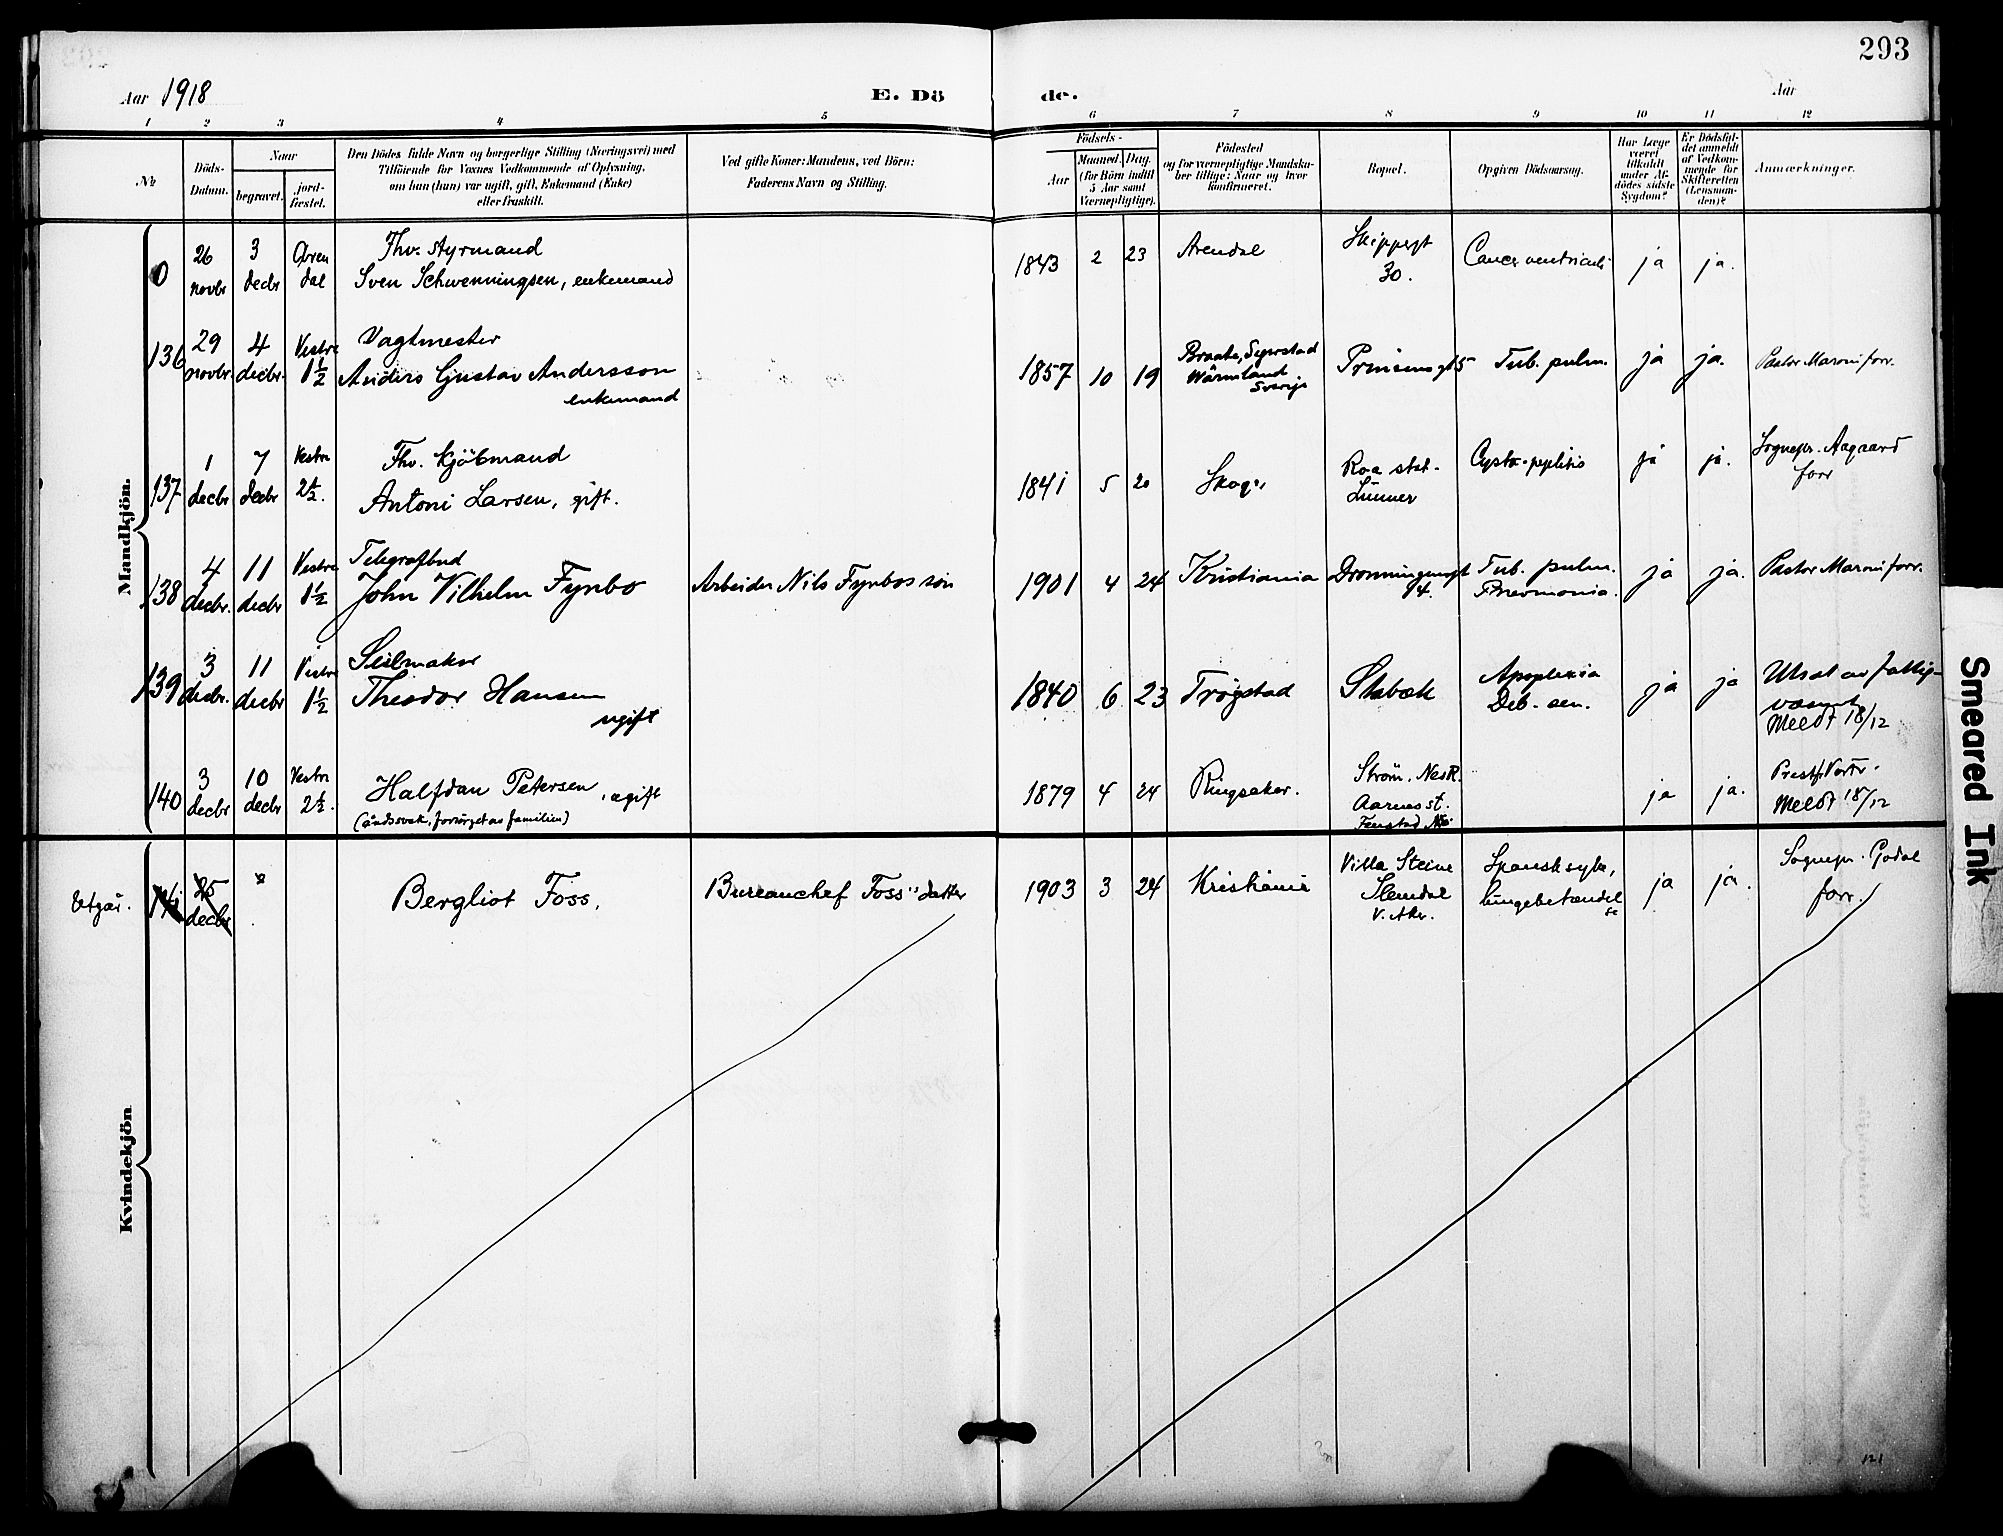 293
Aar 1918
E. Dö
de.
Aar
1 2 3 4 5 6 7 8 9 10 11 12
№
Döds-
Datum.
Naar
begravet.
jord-
fæstet.
Den Dödes fulde Navn og borgerlige Stilling (Næringsvei) med
Tilföiende for Voxnes Vedkommende af Oplysning,
om han (hun) var ugift, gift, Enkemand (Enke)
eller fraskilt.
Ved gifte Koner: Mandens, ved Börn:
Faderens Navn og Stilling.
Födsels-
Aar
Maaned. Dag.
(for Börn indtil
5 Aar samt
Værnepligtige).
Födested
og for værnepligtige Mandska-
ber tillige: Naar og hvor
konfirmeret.
Bopæl.
Opgiven Dödsaarsag.
Har Læge
været
tilkaldt
under Af-
dödes sidste
Sygdom?
Er Dödsfal-
det anmeldt
af Vedkom-
mende for
Skifteretten
(Lensman-
den)?
Anmærkninger.
Mandkjön.
0
26
novbr
3
decbr
Aren
dal
Fhv. styrmand
Sven Schwenningsen, enkemand
1843 2 23
Arendal
Skippergt
30.
Cancer ventriculi
ja
ja.
136
29
novbr.
4
decbr.
Vestre
1½
Vagtmester
Anders Gustav Andersson
enkemand
1857 10 19
Wärmland
Sverige
Prinsensgt 5
Tub. pulm.
ja
ja.
Pastor Maroni forr.
137
1
decbr
7
decbr
Vestre
2½.
Fhv. Kjöbmand
Antoni Larsen, gift.
1841 5 20
Skoger
Roa stat.
Lunner
Cysto-pyelitis
ja
ja.
Sognepr. Aagaard
forr
138
4
decbr.
11
decbr
Vestre
1½
Telegrafbud
John Vilhelm Fynbo
Arbeider Nils Fynbos søn
1901 4 24
Kristiania
Dronningensgt
14.
Tub. pulm.
Pneumonia.
ja
ja.
Pastor Maroni forr.
139
3
decbr.
11
decbr
Vestre
1½
Seilmaker
Theodor Hansen
ugift
1840 6 23
Trøgstad
Stabæk
Apoplexia
Deb. sen.
ja
ja
Utsat av fattig-
væsnet
Meldt 18/12
140
3
decbr
10
decbr
Vestre
2½.
Halfdan Petersen, ugift
(åndssvak, forsørget av familien)
1879 4 24
Ringsaker.
Strøm, Nes R.
Aarnes st.
ja
ja.
Meldt 18/12
Kvindekjön
Utgår.
decbr
Bergliot Foss.
Bureauchef Foss'' datter
1903 3 24
Kristiania
Villa Steine
Slemdal
V. Aker.
Spansksyke,
lungebetændel
se
ja
ja.
Sognepr. Gjødal
forr.
121
Smeared Ink